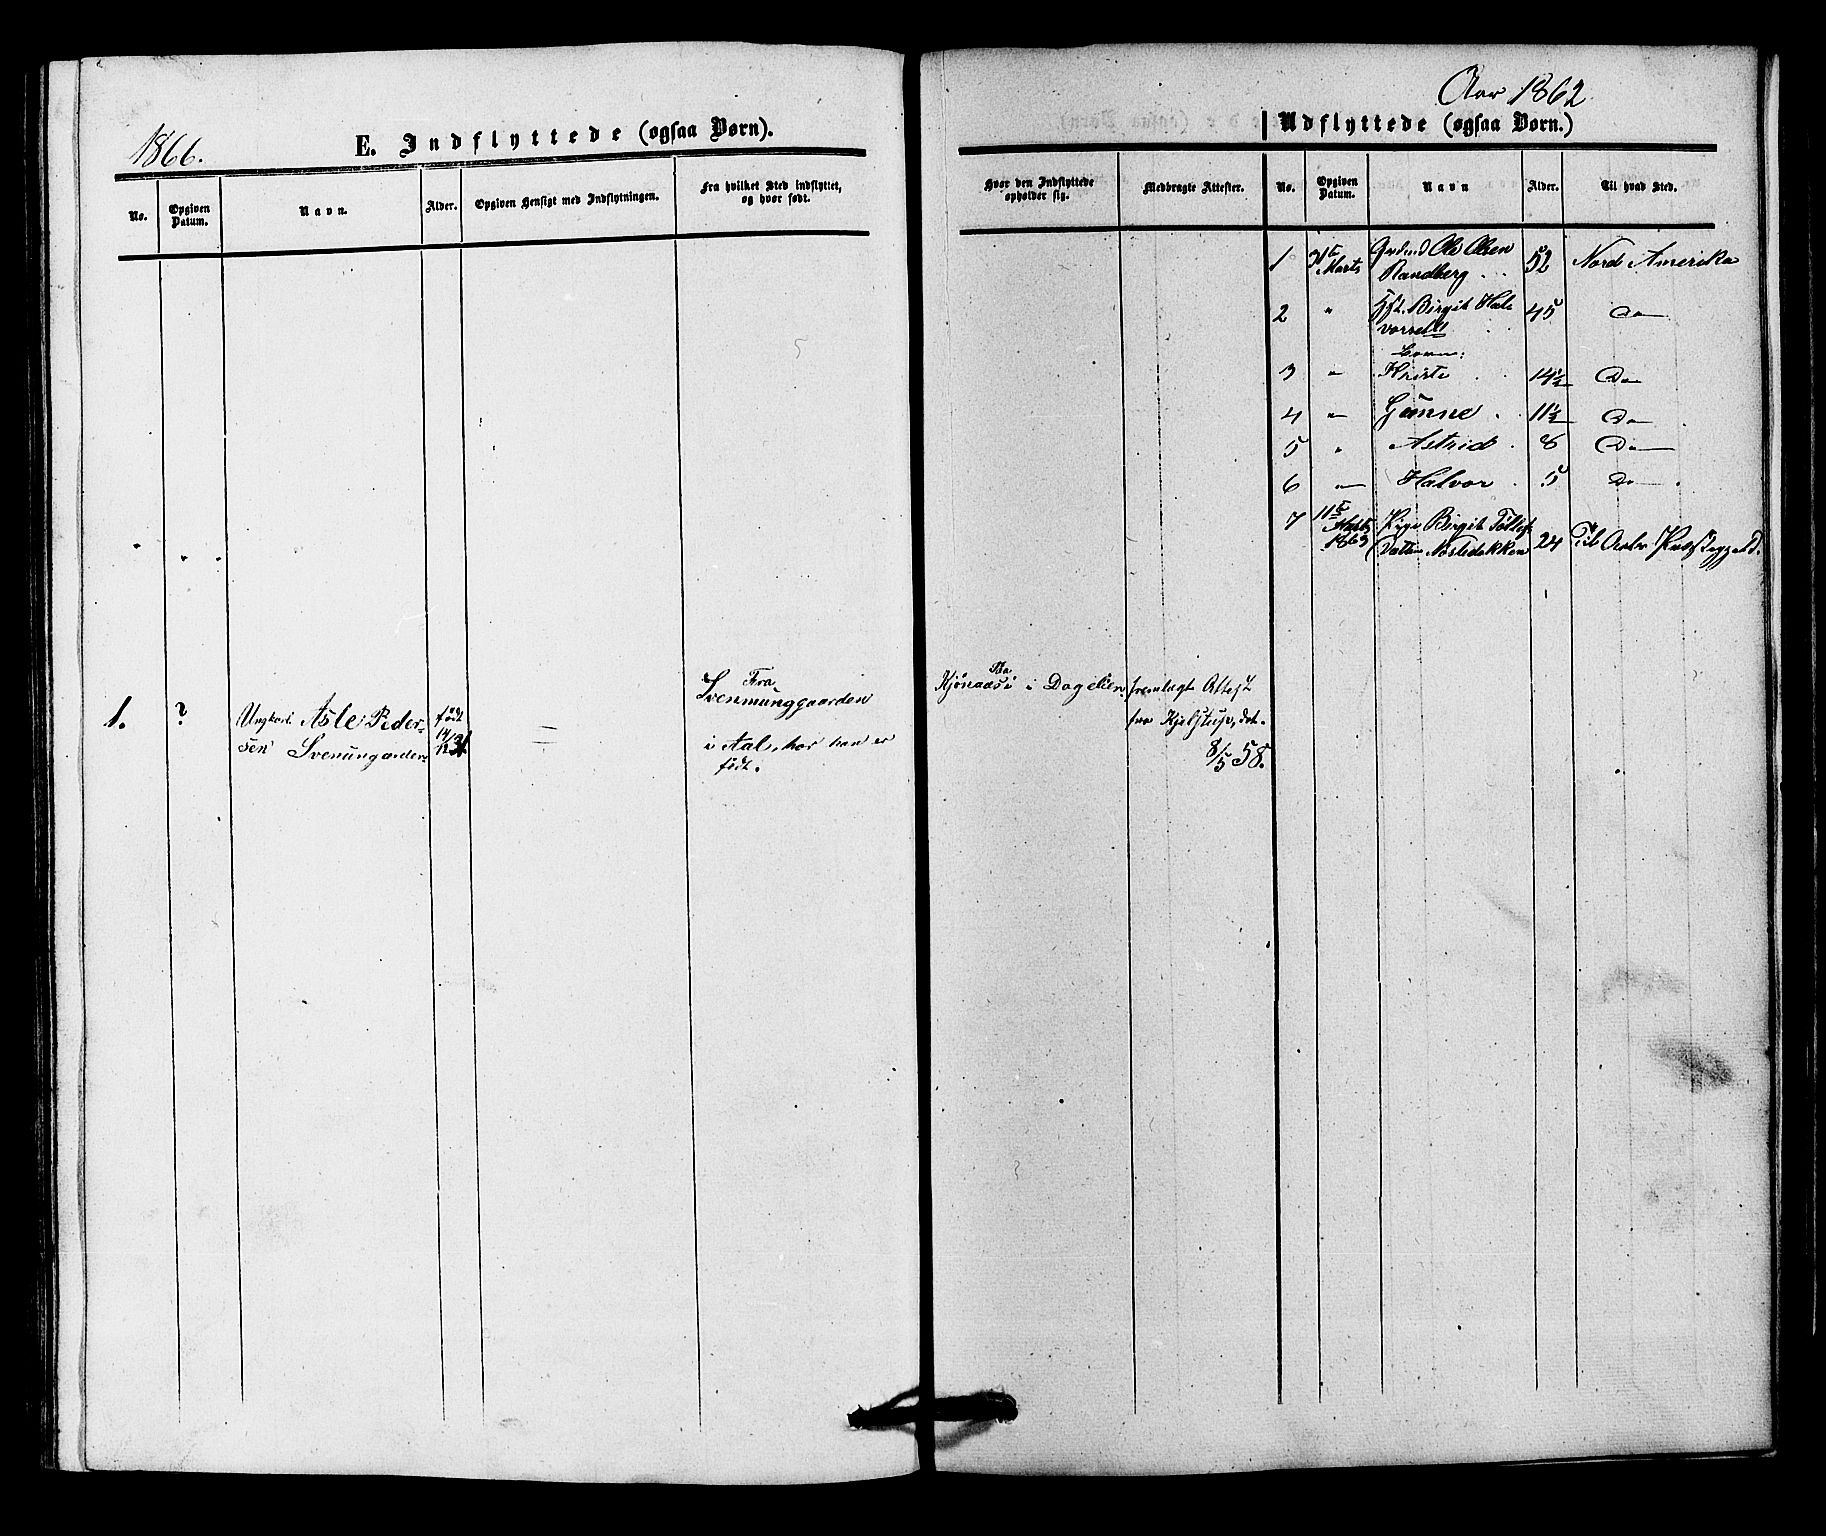 1866.
E. Indflyttede (ogsaa Børn).
No.
Opgiven Datum.
Navn.
Alder.
Opgiven Hensigt med Indflytningen.
Fra hvilket Sted indflyttet, og hvor født.
1.
?
Ungkarl Asle Peder-
sen Svenungarden
født
14/12 31
Fra
Svenunggaarden
i Aal, hvor han er
født.
Aar 1862
Udflyttede (ogsaa Børn.)
Hvor den Indflyttede opholder sig.
Medbragte Attester.
No.
Opgiven Datum.
Navn
Alder.
Til hvad Sted.
1 Marts Ole Olsen
Randberg 52 Nord Amerika
2 " Birgit Hal-
vorsdtr 45 Do
Børn:
3 " Kristi 14½ Do
4 " Gunne 11½ Do
5 " Astrid 8 Do
6 " Halvor 5 Do
7 11te Marts 1863 Pige Birgit
24 Til
i Dagelien
fremlagt Attest
fra Kjelstrup, dat.
8/5 58.